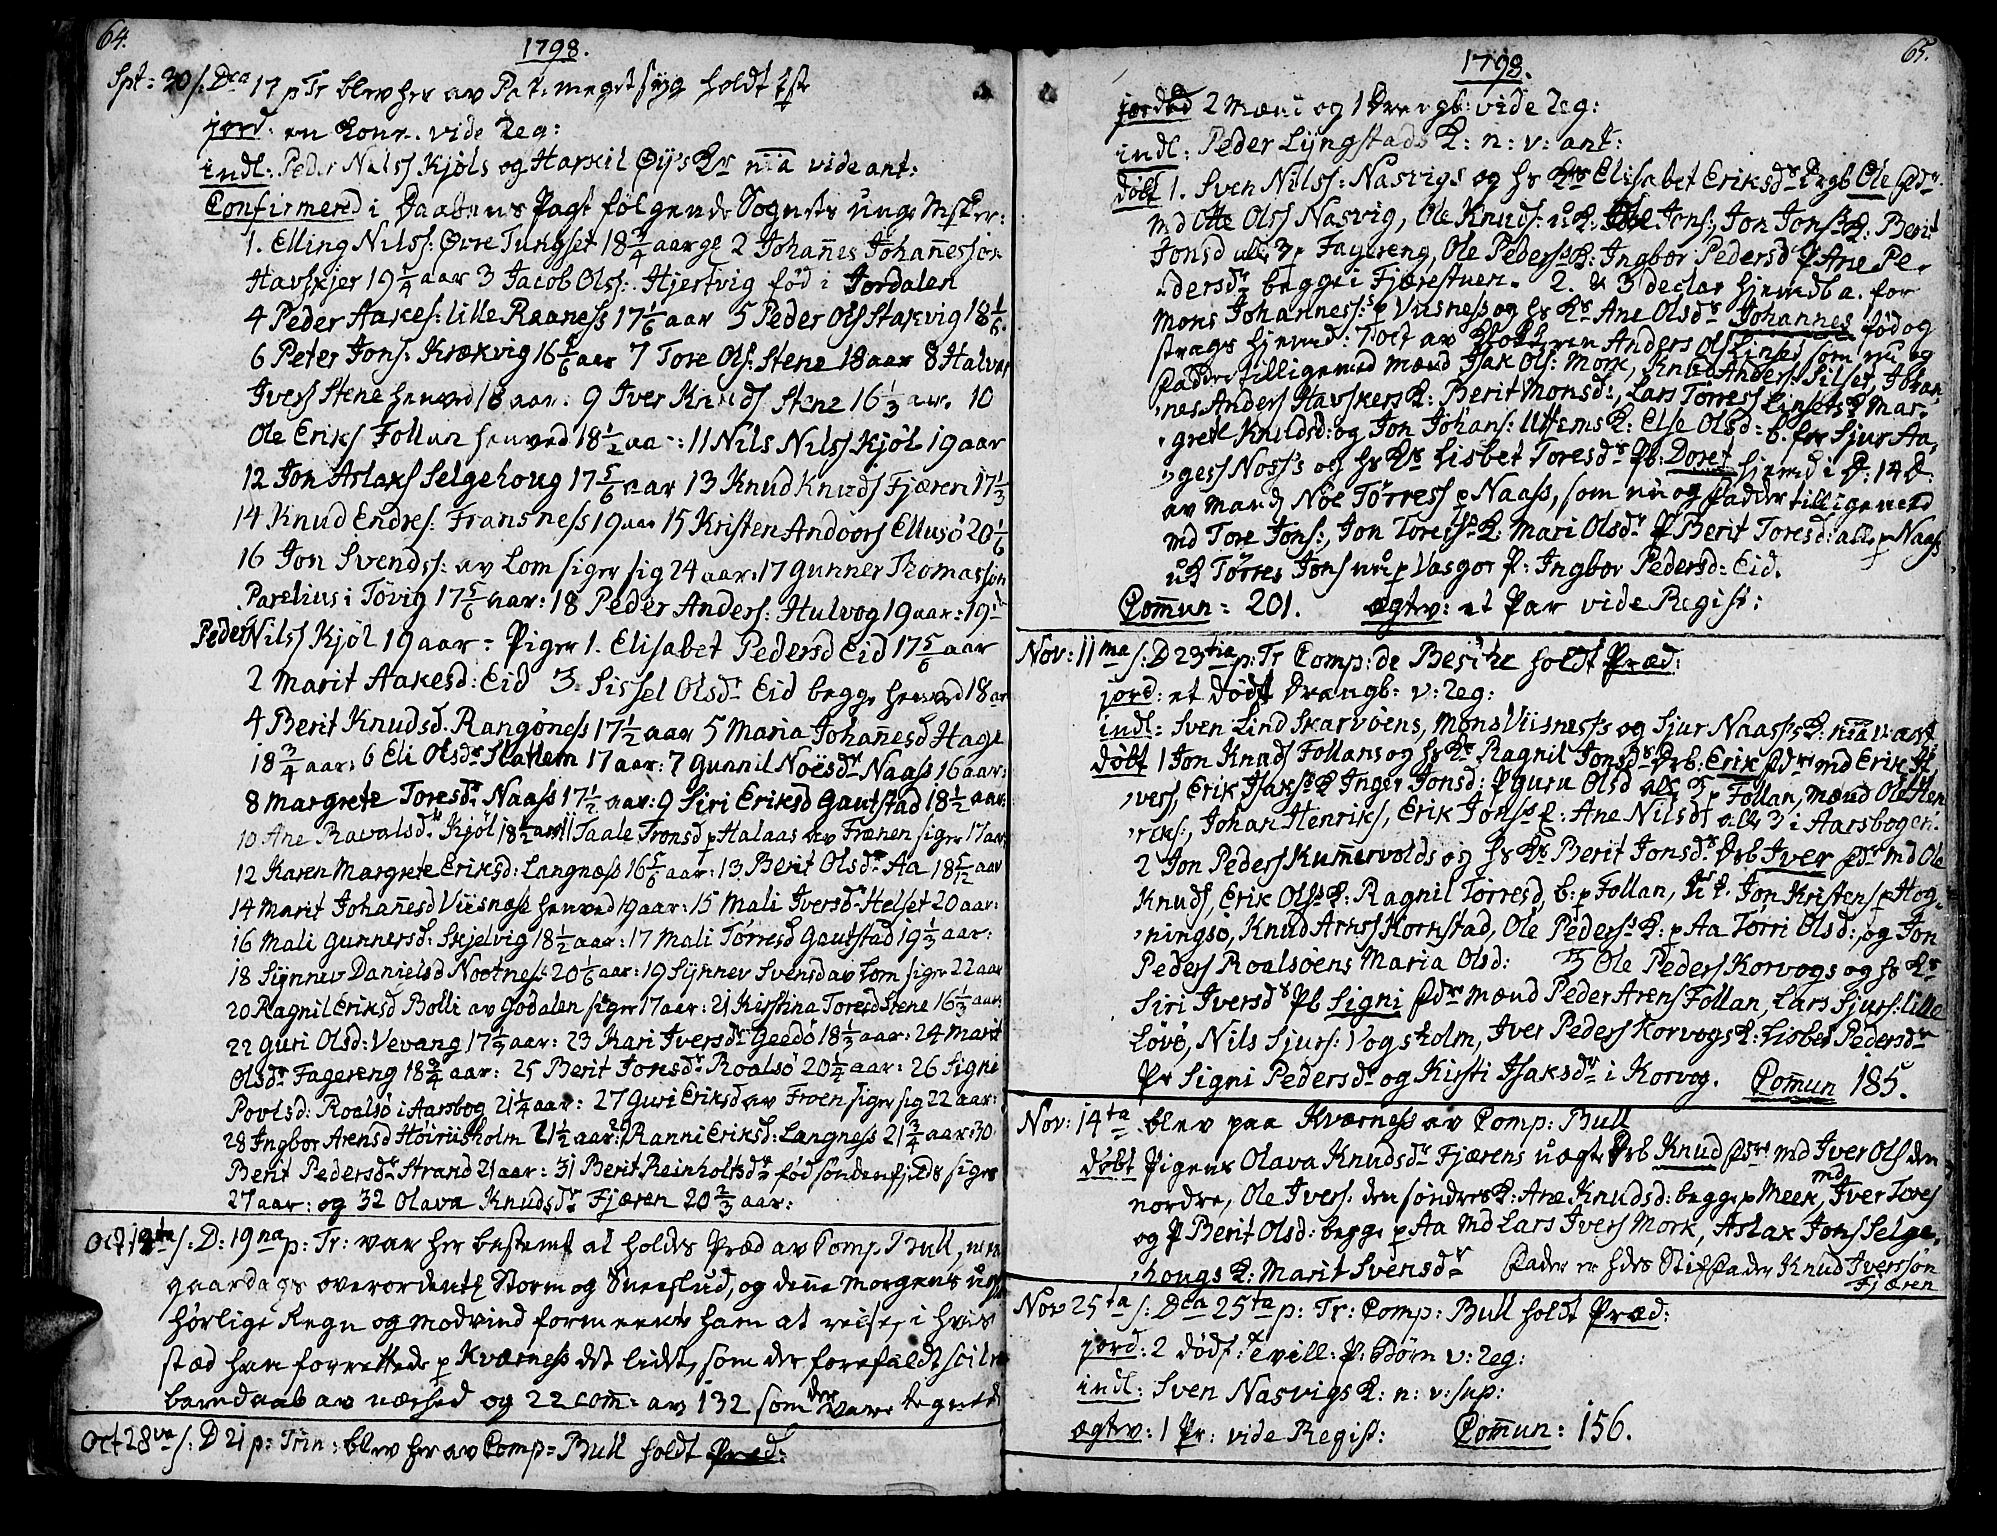 64.
1798.
Spt: 30 s: Dca 17 p Tr blev her av Past: meget syg holdt Tste
jord: en Kone. vide Reg:
indl: Peder Nilss Kjøls og Harkil Øÿs Kr nīīā vide ant:
Confirmered i Daabens Pagt følgende Sognets unge Msker:
1. Elling Nilss: Øvre Tungset 18 3/4 aar gl 2 Johan̄es Johan̄esson
Havskjer 19 1/4 aar 3 Jacob Olss: Hjertvig fød i Jordalen
4 Peder Aakes: lille Raaness 17 1/6 aar 5 Peder Ols Stakvig 18 1/6
6 Peter Jons: Krækvig 16 1/6 aar 7 Tore Ols: Stene 18 aar 8 Halvor
Ivers Stene henved 18 aar. 9 Iver Knuds Stene 16 1/3 aar. 10
Ole Eriks Follan henved 18 1/2 aar: 11 Nils Nilss Kjøl 19 aar
12 Jon Aslaks Selgehoug 17 5/6 aar 13 Knud Knuds Fjæren 17 1/3
14 Knud Endres: Fransness 19 aar 15 Kristen Andoors Ellusö 20 1/6
16 Jon Svends: av Lom siger sig 24 aar: 17 Gunner Thomasson
Parelius i Tövig 17 5/6 aar: 18 Peder Anders: Hulvog 19 aar: 19
Peder Nilss Kjöl 19 aar: Piger 1. Elisabet Pedersd Eid 17 5/6 aar
2 Marit Aakesd: Eid 3. Sissel Olsdr Eid begge henved 18 aar
4 Berit Knudsd. Rangöness 17 1/2 aar 5 Maria Johan̄esd Hage
18 3/4 aar: 6 Eli Olsdr Slatlem 17 aar: 7 Gunnil Noësdr Naass 16 aar:
8 Margrete Toresdr Naass 17 1/2 aar: 9 Siri Eriksd Gautstad 18 1/2 aar:
10 Ane Ravalsdr Kjöl 18 1/2 aar 11 Taale Tronsd p Halaas av Frænen siger 17 aar
12 Karen Margrete Eriksd: Langnæss 16 5/6 aar: 13. Berit Olsdr Aa 18 5/12 aar
14 Marit Johan̄esd Viisnæss henved 19 aar: 15 Mali Iversdr Helset 20 aar:
16 Mali Gunnersd: Skjelvig 18 1/2 aar: 17 Mali Törresd Gautstad 19 1/3 aar:
18 Synnev Danielsd Nootness 20 1/6 aar: 19 Synnev Svensd av Lom siger 22 aar
20 Ragnil Eriksd Bolli av Godalen siger 17 aar: 21 Kirstina Toresd Stene 16 1/3 aar:
22 Guri Olsd: Vevang 17 1/3 aar: 23 Kari Iversdr Geedö 18 1/3 aar: 24 Marit
Olsdr Fagereng 18 3/4 aar: 25 Berit Jonsdr Roalsö 20 1/4 aar: 26 Signi
Povlsd: Roalsö i Aarsbog 21 1/4 aar: 27 Guri Eriksd av Froen siger sig 22 aar:
28 Ingbor Arensd Höiriisholm 21 1/2 aar: 29 Ranni Eriksd: Langness 21 3/4 aar: 30
Berit Pedersdr Strand 21 aar: 31 Berit Reinholtsdr fød søndenfjelds siger
27 aar: og 32 Olava Knudsdr Fjæren 20 2/3 aar:
Oct s: D: 19na p: Tr: var her bestemt at holdes Præd av Comp Bull, men
gaardags overordentl Storm og Sneeslud, og den̄e Morgens
hørlige Regn og Modvind formeente ham at reise, i hvis
stæd han forrettede p Kværness det lidet, som der forefaldt scil:
barnedaab av nærhed og 22 com̄: av 132 som der vare tegnede
Oct 28va s: D 21 p: Trin: blev her av Comp: Bull holdt Præd:
65.
1798.
jorded 2 Mænd og 1 Drengb: vide Reg:
indl: Peder Lyngstads K: n: v: ant:
døbt 1. Sven Nilss: Nasvigs og hs Krs Elisabet Eriksdr Drgb Ole fdr
md Otte Olss Nasvig, Ole Knuds: uk: Jons:, Jon Jons K: Berit
Jonsd alle 3 p Fagereng, Ole Peders K: Ingbor Pedersd P Ane Pe-
dersdr begge i Fjærestuen. 2. & 3 declar hjemdb a. for
Mons Johannes: p Viisness og hs Kr Ane Olsdr Johannes fød og
strags hjemd: Tolt av Anders Ols Linset som nu og
fadder tilligemed mænd Isak Ols: Mork, Knud Anders: Silset, Johan-
nes Anders Havskers K: Berit Monsd:, Lars Törress Linsets K Mar-
gret Knudsd: og Jon Johans: Uttems K: Else Olsd: b. for Sjur Aa-
gess Noss's og hs Krs Lisbet Toresdr Pb: Doret hjemd i D: 14 D
av mand Noe Törress p Naass, som nu og fadder tilligemed
md Tore Jons:, Jon Tores K: Mari Olsdr P Berit Toresd: alle p Naass
uk Törres Jons nu p Vasgor P: Ingbor Pedersd: Eid.
Com̄un: 201. ægtev: et Par vide Regist:
Nov: 11ma s: D 23tia p: Tr Comp: de Besche holdt Præd:
jord: et dødf Drængb: v: Reg:
indl: Sven Lind Skarvöens, Mons Viisness's og Sjur Naass's K: nīīā v: ant
døbt 1 Jon Knuds Follans og hs Kr Ragnil Jonsdr Drb: Erik fdr md Erik I-
vers, Erik Isaks K Inger Jonsd: P Guru Olsd alle 3 p Follan, mænd Ole Hen-
riks:, Johan Henriks, Erik Jons K: Ane Nilsd alle 3 i Aarsbogen.
2 Jon Peders Kum̄ervolds og hs Kr Berit Jonsdr Drb Iver fdr md Ole
Knuds, Erik Ols K: Ragnil Törresd, b: p Follan, Jon Kristens p Hog-
ningsö, Knud Arnss Kornstad, Ole Peders K: p Aa Törri Olsd:, og Jon
Peders Roalsöens Maria Olsd: 3 Ole Peders Korvogs og hs Kr
Siri Iversdr Pb Signi fdr mænd Peder Arens Follan, Lars Sjurs: lille
Lövö, Nils Sjurs: Vogsholm, Iver Peders Korvogs K: Lisbet Pedersdr
Pr Signi Pedersdr og Kirsti Isaksdr i Korvog. Com̄un 185.
Nov: 14ta blev paa Kværness av Comp: Bull
døbt Pigens Olava Knudsdr Fjærens uægte Drb Knud fdr md Iver Ols den
nordre, Ole Ivers: den søndres K: Ane Knudsd: begge p Meek, md Iver Tores
og P Berit Olsd: begge p Aa md Lars Ivers Mork, Aslak Jons Selge-
hougs K: Marit Svensdr Fader er hdes Stiffader Knud Iverssön
Fjæren
Nov 25ta s: Dca 25ta p: Tr: Comp: Bull holdt Præd:
jord: 2 dødf: Tvill: P: Børn v: Reg:
indl: Sven Nasvigs K: n: v: sup:
ægtev: 1 Pr: vide Regist: Com̄un: 156.